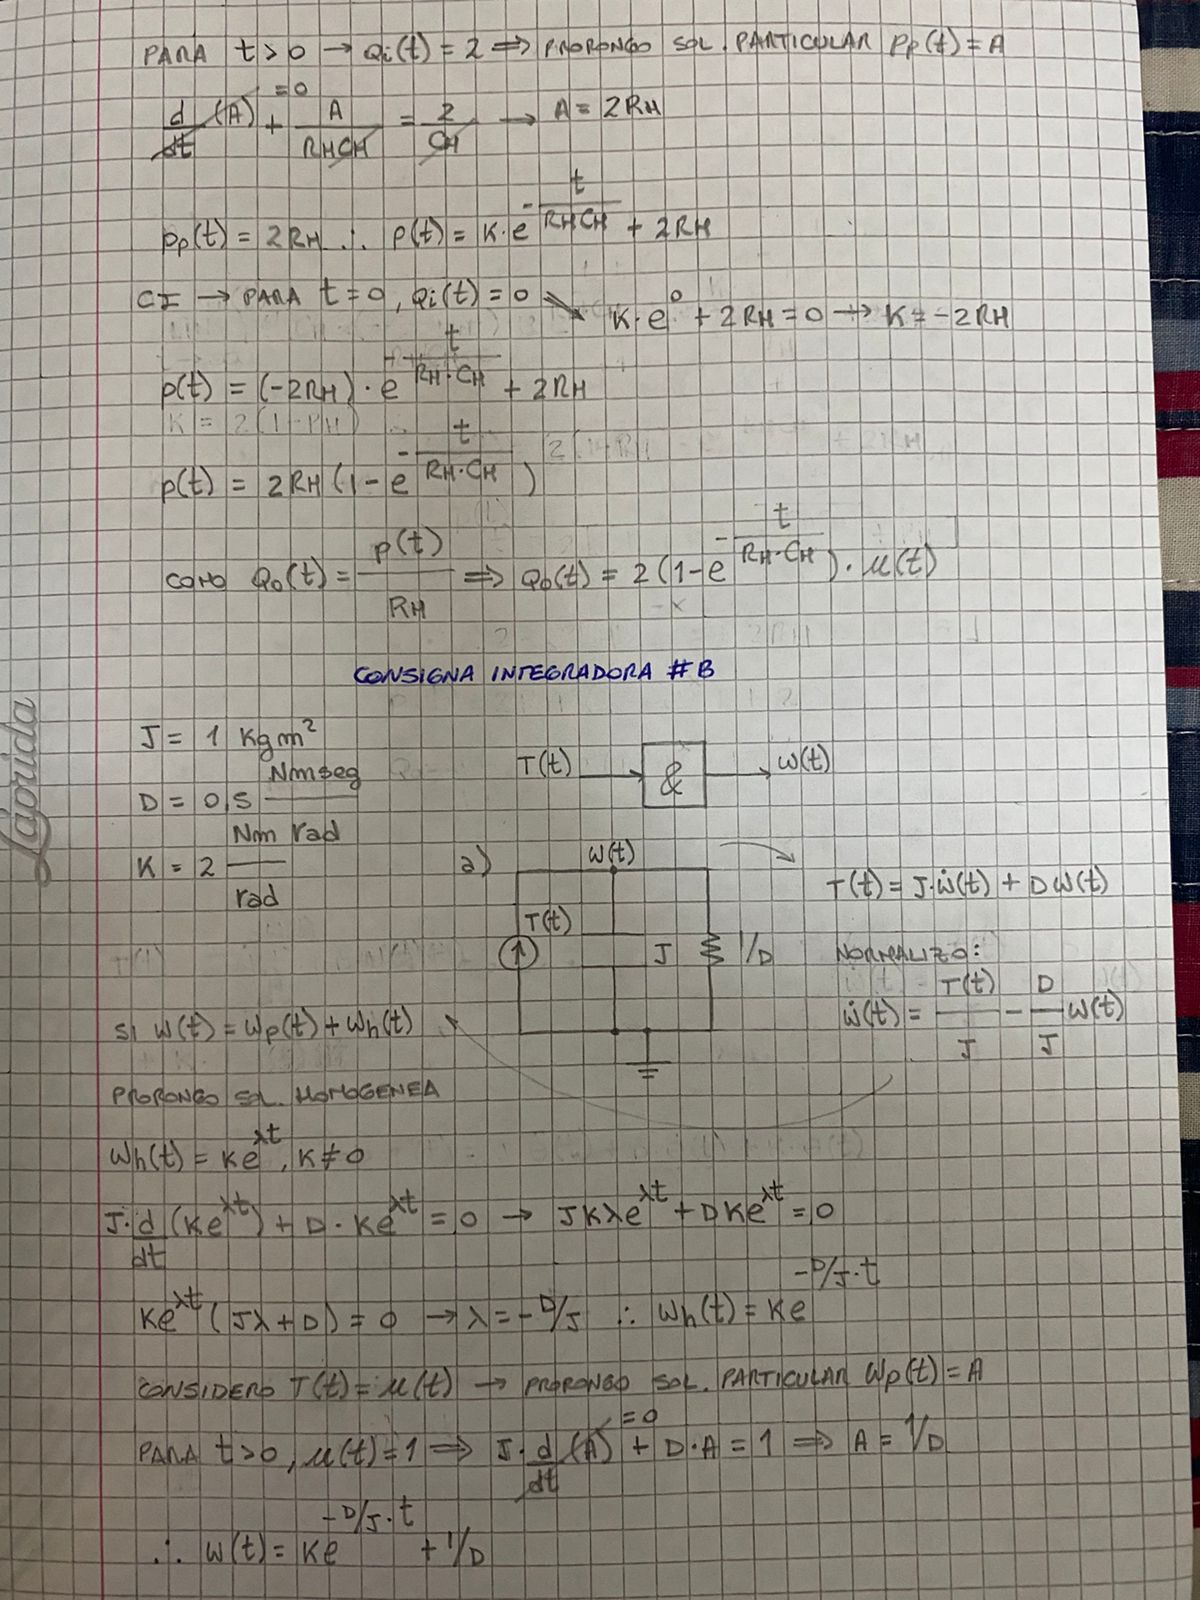 PARA t>0 → Qi(t) = 2 ⟹ PROPONGO SOL. PARTICULAR Pp(t) = A
d/dt (A) =0 + A/(RHCH) = 2/CH → A = 2RH
pp(t) = 2RH ∴ p(t) = K·e^(-t/(RHCH)) + 2RH
CI → PARA t=0, Qi(t) = 0 ↘ K·e^0 + 2RH = 0 → K = -2RH
p(t) = (-2RH)·e^(-t/(RH·CH)) + 2RH
p(t) = 2RH (1-e^(-t/(RH·CH)))
COMO Qo(t) = p(t)/RH ⟹ Qo(t) = 2(1-e^(-t/(RH·CH)))·μ(t)
CONSIGNA INTEGRADORA #B
Laprida
J = 1 Kgm²
D = 0,5 Nmseg/rad
K = 2 Nm/rad
T(t) → & → W(t)
a)
W(t)
T(t)
J
1/D
T(t) = J·ẇ(t) + DW(t)
NORMALIZO:
ẇ(t) = T(t)/J - D/J W(t)
SI W(t) = Wp(t) + Wh(t)
PROPONGO SOL. HOMOGENEA
Wh(t) = Ke^λt, K≠0
J·d/dt (Ke^λt) + D·Ke^λt = 0 → JKλe^λt + DKe^λt = 0
Ke^λt (Jλ+D) = 0 → λ = -D/J ∴ Wh(t) = Ke^(-D/J·t)
CONSIDERO T(t) = μ(t) → PROPONGO SOL. PARTICULAR Wp(t) = A
PARA t>0, μ(t) = 1 ⟹ J·d/dt (A) =0 + D·A = 1 ⟹ A = 1/D
∴ W(t) = Ke^(-D/J·t) + 1/D